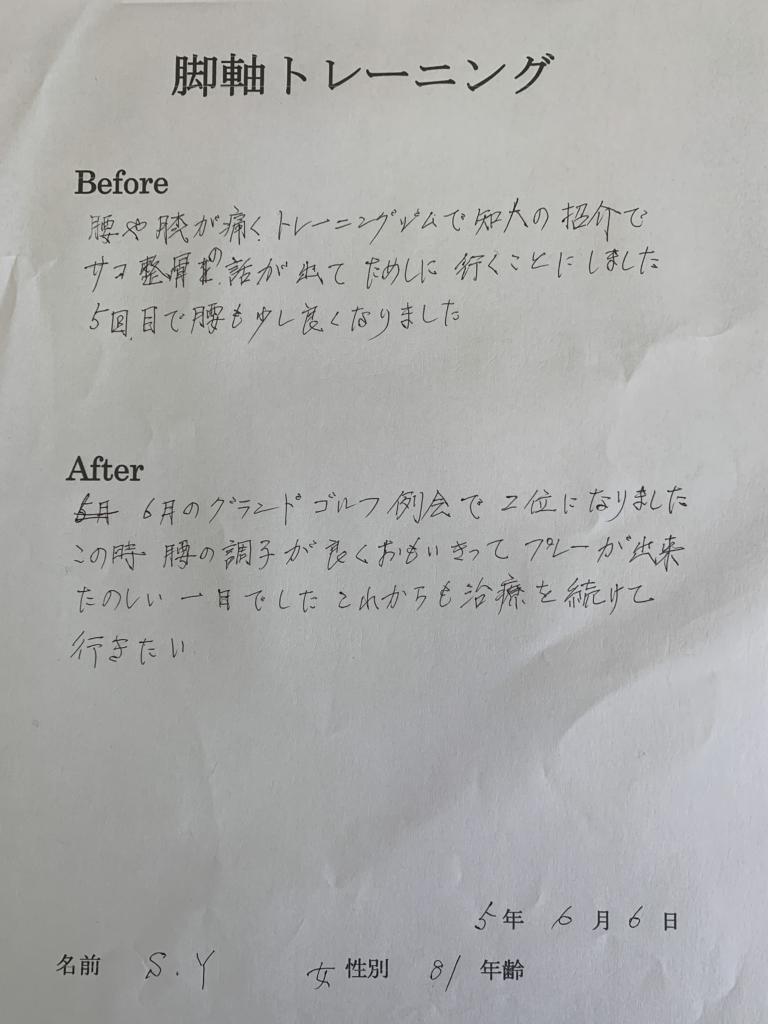 脚軸トレーニング
Before
腰や膝が痛く、トレーニングジムで知人の紹介で
サコ整骨の話が出て ためしに 行くことにしました
5回目で腰も少し良くなりました
After
5月 6月のグランドゴルフ例会で 2位になりました
この時 腰の調子が良くおもいきって プレーが出来
たのしい 一日でした これからも治療を続けて
行きたい
5年 6月6日
名前 S.Y 女 性別 81 年齢